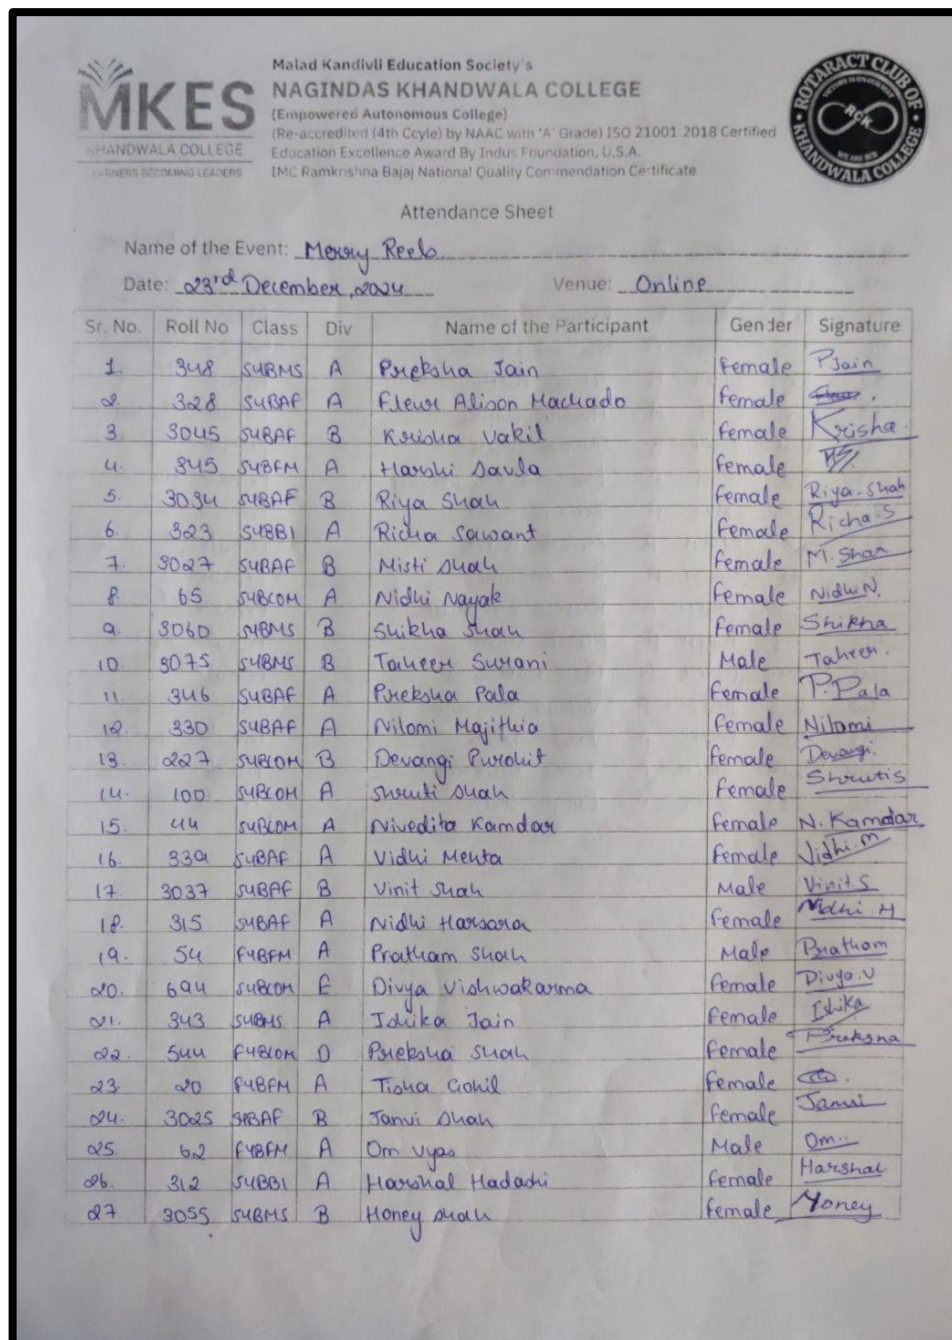 MKES
KHANDWALA COLLEGE
LEARNERS BECOMING LEADERS
Malad Kandivli Education Society's
NAGINDAS KHANDWALA COLLEGE
(Empowered Autonomous College)
(Re-accredited (4th Ccyle) by NAAC with 'A' Grade) ISO 21001 2018 Certified
Education Excellence Award By Indus Foundation, U.S.A.
IMC Ramkrishna Bajaj National Quality Commendation Certificate
ROTARACT CLUB OF
RCK
WE ARE RCK
KHANDWALA COLLEGE
Attendance Sheet
Name of the Event: Merry Reels
Date: 23rd December, 2024 Venue: Online
Sr. No. Roll No Class Div Name of the Participant Gender Signature
1. 348 SYBMS A Preksha Jain Female PJain
2. 328 SYBAF A Fleur Alison Machado Female
3. 3045 SYBAF B Krisha Vakil Female Krisha
4. 345 SYBFM A Harshi Savla Female HS
5. 3034 SYBAF B Riya Shah Female Riya.Shah
6. 323 SYBBI A Richa Sawant Female Richa.S
7. 3027 SYBAF B Misti Shah Female M.Shah
8. 65 SYBCOM A Nidhi Nayak Female Nidhi N.
9. 3060 SYBMS B Shikha Shah Female Shikha
10. 3075 SYBMS B Taheer Surani Male Taheer.
11. 346 SYBAF A Preksha Pala Female P.Pala
12. 330 SYBAF A Nilomi Majithia Female Nilomi
13. 227 SYBCOM B Devangi Purohit Female Devangi.
14. 100 SYBCOM A Shruti Shah Female Shrutis
15. 44 SYBCOM A Nivedita Kamdar Female N. Kamdar
16. 339 SYBAF A Vidhi Mehta Female Vidhi.m
17. 3037 SYBAF B Vinit Shah Male Vinit S
18. 315 SYBAF A Nidhi Harsora Female Nidhi.H
19. 54 FYBFM A Pratham Shah Male Pratham
20. 694 SYBCOM E Divya Vishwakarma Female Divya.V
21. 343 SYBMS A Ishika Jain Female Ishika
22. 544 FYBCOM D Preksha Shah Female Preksha
23. 20 FYBFM A Tisha Gohil Female
24. 3025 SYBAF B Janvi Shah Female Janvi
25. 62 FYBFM A Om Vyas Male Om..
26. 312 SYBBI A Harshal Hadashi Female Harshal
27 3055 SYBMS B Honey Shah Female Honey